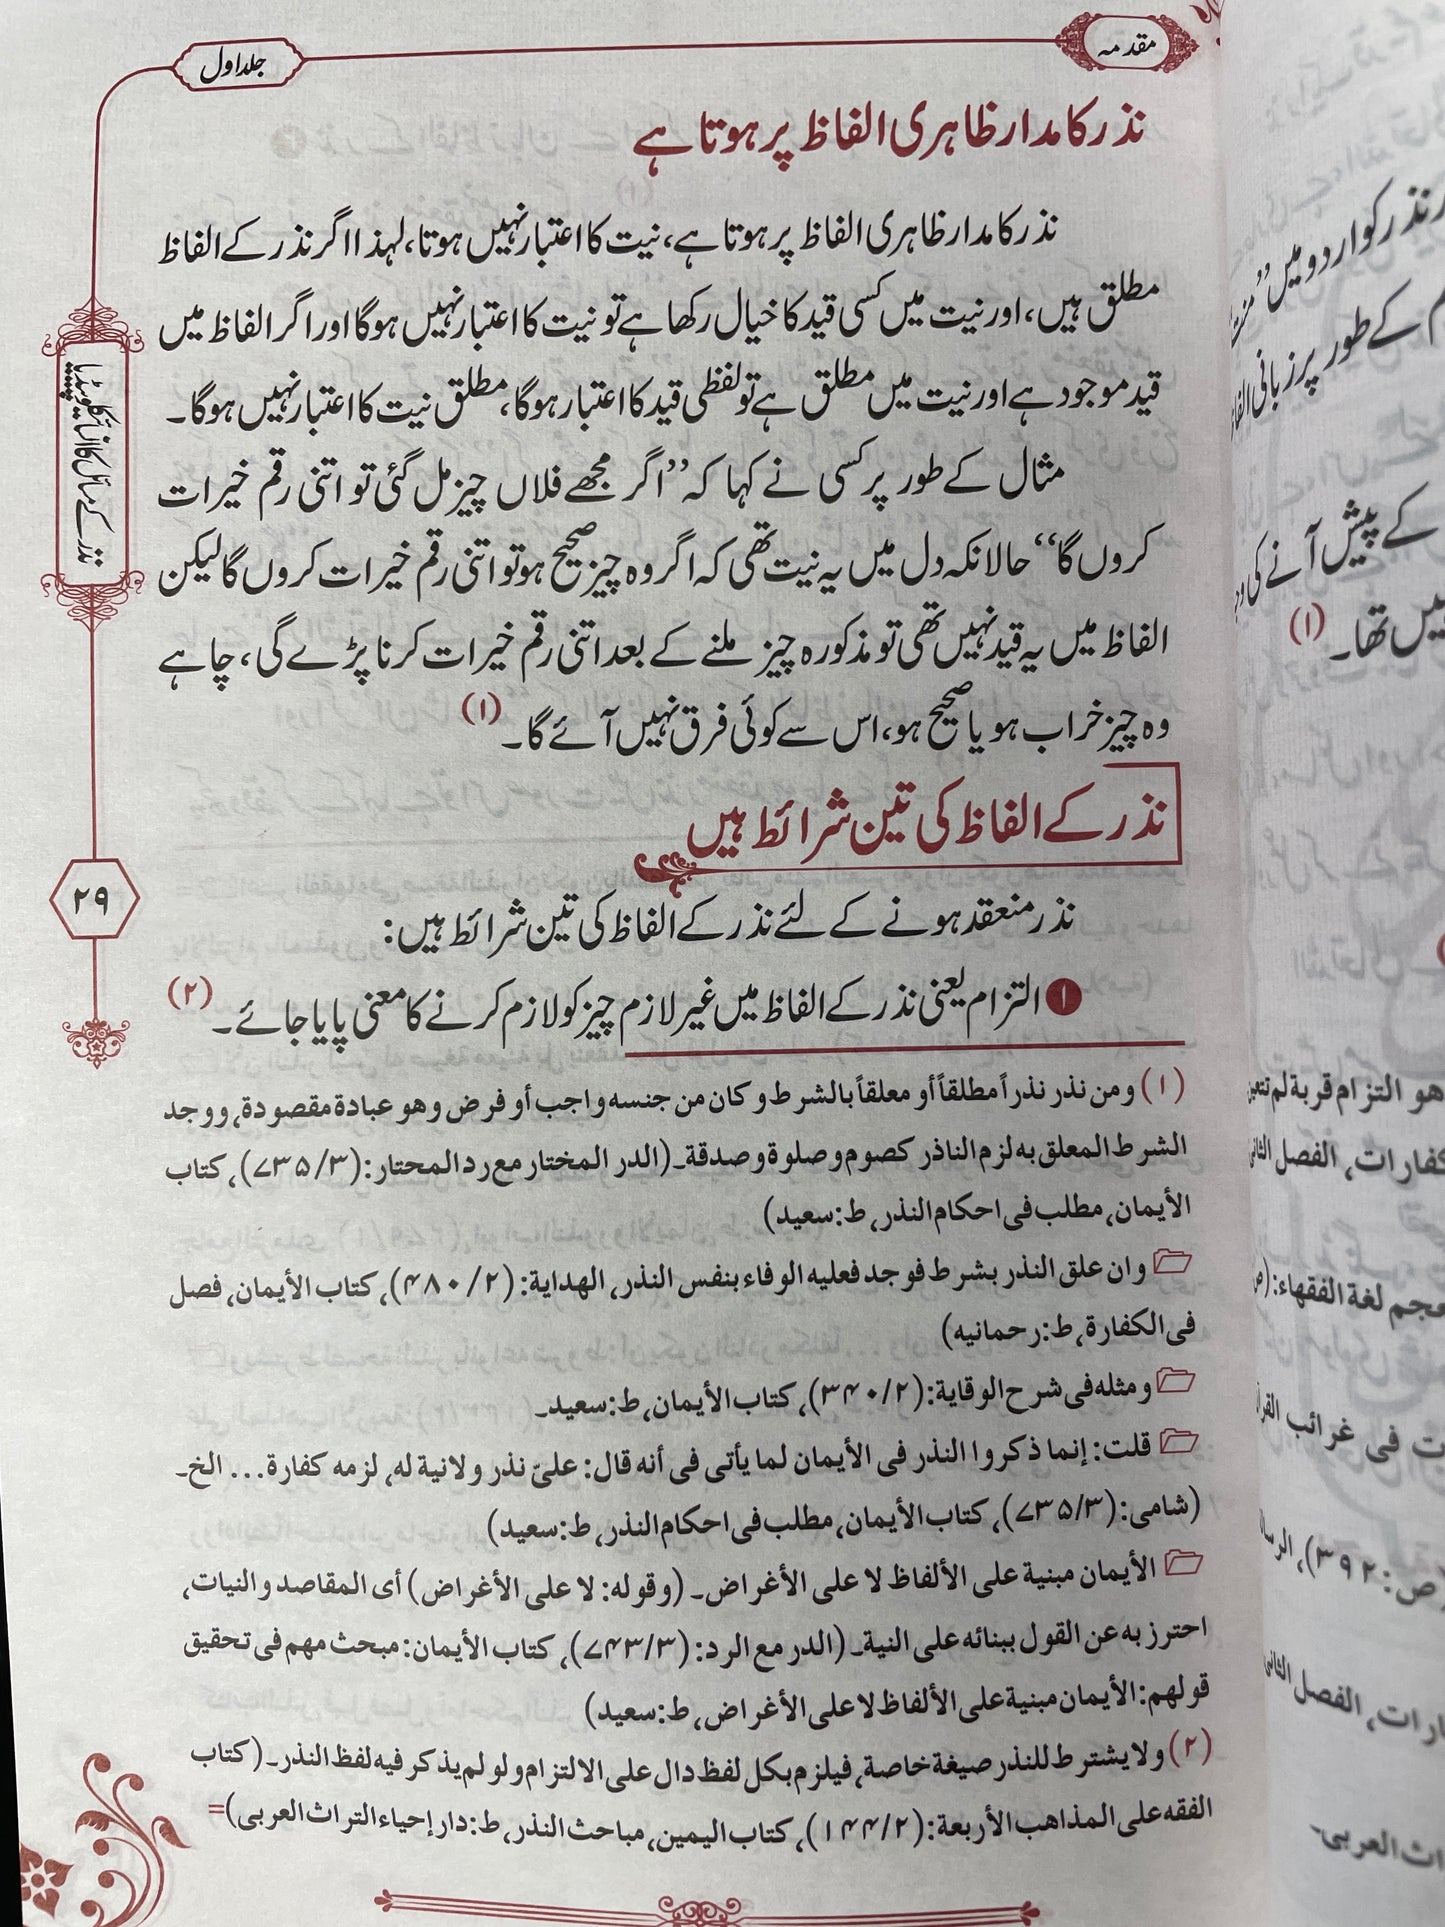 مقدمہ
جلد اول
نذر کا مدار ظاہری الفاظ پر ہوتا ہے
نذر کا مدار ظاہری الفاظ پر ہوتا ہے، نیت کا اعتبار نہیں ہوتا، لہذا اگر نذر کے الفاظ
مطلق ہیں، اور نیت میں کسی قید کا خیال رکھا ہے تو نیت کا اعتبار نہیں ہوگا اور اگر الفاظ میں
قید موجود ہے اور نیت میں مطلق ہے تو لفظی قید کا اعتبار ہوگا، مطلق نیت کا اعتبار نہیں ہوگا۔
مثال کے طور پر کسی نے کہا کہ ’’اگر مجھے فلاں چیز مل گئی تو اتنی رقم خیرات
کروں گا‘‘ حالانکہ دل میں یہ نیت تھی کہ اگر وہ چیز صحیح ہو تو اتنی رقم خیرات کروں گا لیکن
الفاظ میں یہ قید نہیں تھی تو مذکورہ چیز ملنے کے بعد اتنی رقم خیرات کرنا پڑے گی، چاہے
وہ چیز خراب ہو یا صحیح ہو، اس سے کوئی فرق نہیں آئے گا۔ (۱)
نذر کے الفاظ کی تین شرائط ہیں
نذر منعقد ہونے کے لئے نذر کے الفاظ کی تین شرائط ہیں:
۱ التزام یعنی نذر کے الفاظ میں غیر لازم چیز کو لازم کرنے کا معنی پایا جائے۔ (۲)
(۱) ومن نذر نذراً مطلقاً أو معلقاً بالشرط وكان من جنسه واجب أو فرض وهو عبادة مقصودة، ووجد
الشرط المعلق به لزم الناذر كصوم وصلوة وصدقة۔ (الدر المختار مع رد المحتار: (۳/۷۳۵)، كتاب
الأيمان، مطلب فى احكام النذر، ط: سعيد)
وان علق النذر بشرط فوجد فعليه الوفاء بنفس النذر، الهداية: (۲/۴۸۰)، كتاب الأيمان، فصل
فى الكفارة، ط: رحمانيه)
ومثله فى شرح الوقاية: (۲/۳۴۰)، كتاب الأيمان، ط: سعيد۔
قلت: إنما ذكروا النذر فى الأيمان لما يأتى فى أنه قال: علىّ نذر ولا نية له، لزمه كفارة... الخ۔
(شامى: (۳/۷۳۵)، كتاب الأيمان، مطلب فى احكام النذر، ط: سعيد)
الأيمان مبنية على الألفاظ لا على الأغراض۔ (وقوله: لا على الأغراض) أى المقاصد والنيات،
احترز به عن القول ببنائه على النية۔ (الدر مع الرد: (۳/۷۴۳)، كتاب الأيمان: مبحث مهم فى تحقيق
قولهم: الأيمان مبنية على الألفاظ لا على الأغراض، ط: سعيد)
(۲) ولا يشترط للنذر صيغة خاصة، فيلزم بكل لفظ دال على الالتزام ولو لم يذكر فيه لفظ النذر۔ (كتاب
الفقه على المذاهب الأربعة: (۲/۱۴۴)، كتاب اليمين، مباحث النذر، ط: دار إحياء التراث العربى)=
نذر کے مسائل کا انسائیکلوپیڈیا
۲۹
نذر کو اردو میں
کے طور پر زبانی
کے پیش آنے کی
ہیں تھا۔ (۱)
هو التزام قربة لم
كفارات، الفصل الثانى
معجم لغة الفقهاء:
فى غرائب
(ص: ۳۹۲)،
الفصل الثانى
العربى۔